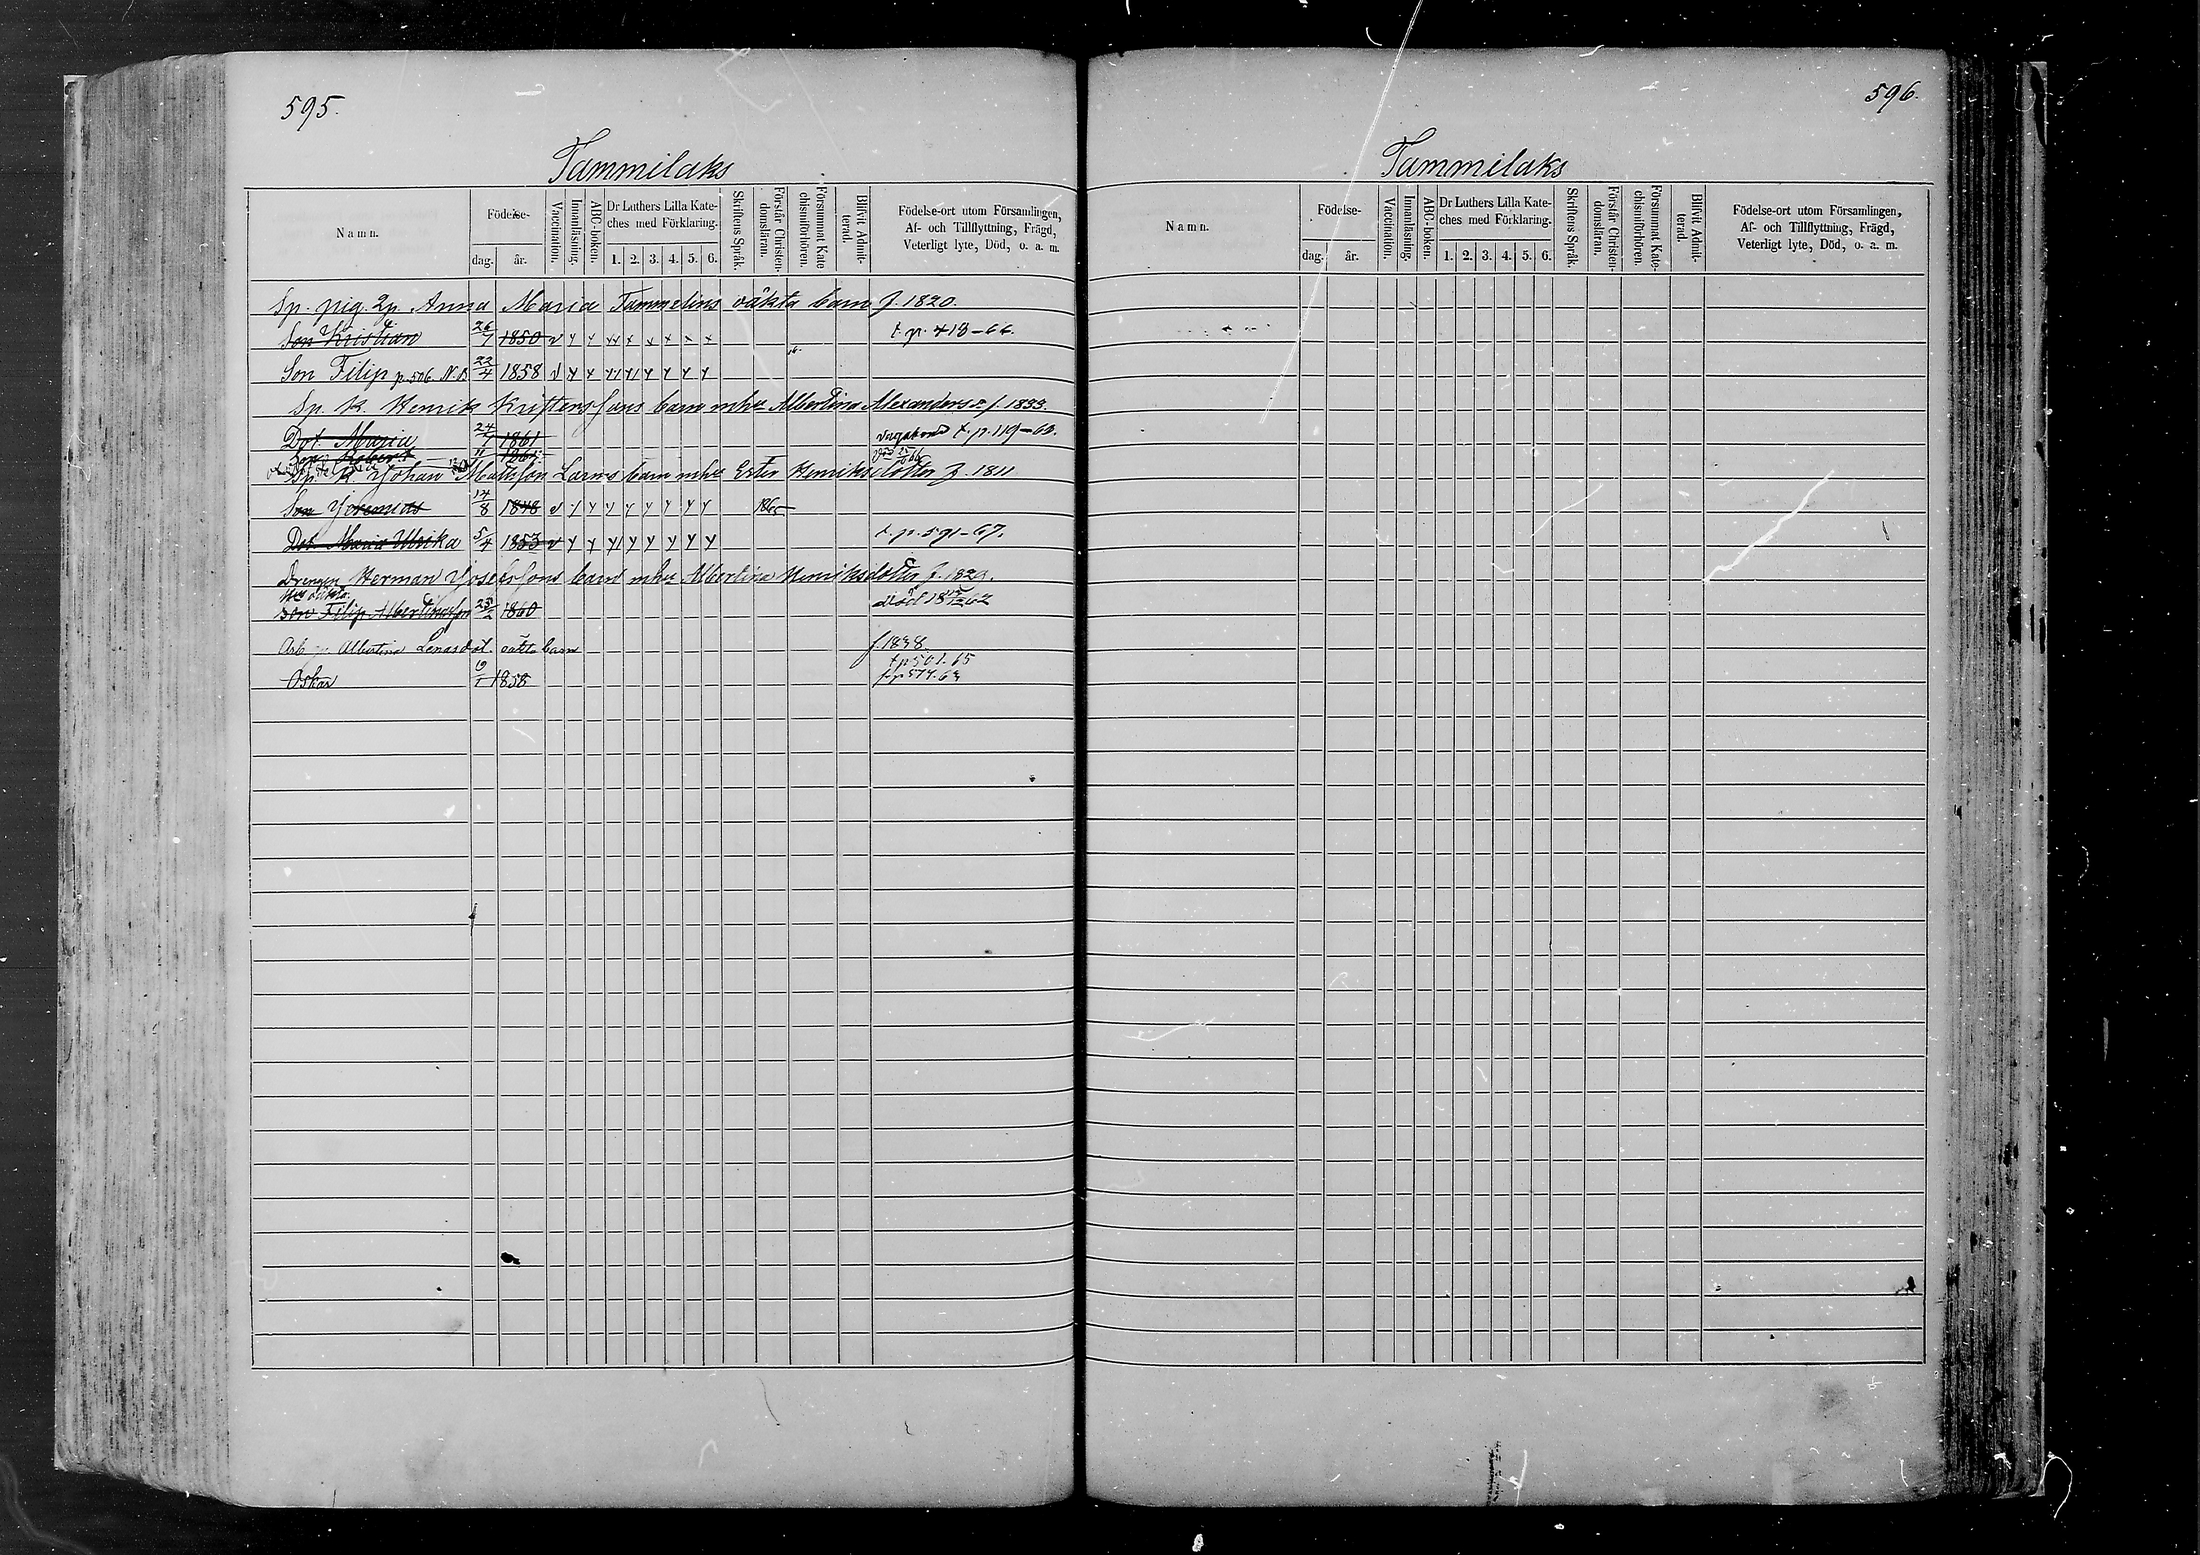 595.
Tammilaks
Namn.
Födelse-
dag.
år.
Vaccination.
Innanläsning.
ABC-boken.
Dr Luthers Lilla Kate-
ches med Förklaring.
1. 2. 3. 4. 5. 6.
Skriftens Språk.
Förstår Christen-
domsläran.
Försummat Kate
chismiförhören.
Blifvit Admit-
terad.
Födelse-ort utom Församlingen,
Af- och Tillflyttning, Frägd,
Veterligt lyte, Död, o. a. m.
Sp. pig. Anna Maria Tammelins oäkta barn f. 1820.
Son Kristian 26/7 1850 v t. p. 418-66.
Son Filip p. 506. N.B 22/4 1858 v
Sp. K. Henrik Kristerssons barn mhu Albertina Alexandersr f. 1833.
Dot. Maria 24/7 1861 t. p. 119-63.
Son 11 186
Sp. K. Johan Mattsson barn mhu Ester Henriksdotter f. 1811
Son Jeremias 14/8 1848 v
Dot. Maria Ulrika 5/4 1853 v t. p. 591-67.
Drengen Herman Josefssons barn mhu Albertina Henriksdotter f. 182
oäkta
Son Filip Albertinasson 1860 död 62
Arb. Albertina Lenasdot. oäkta barn f. 1838.
t p 501. 65
Oskar 1858 fr p 577. 63
596.
Tammilaks
Namn.
Födelse-
dag.
år.
Vaccination.
Innanläsning.
ABC-boken.
Dr Luthers Lilla Kate-
ches med Förklaring.
1. 2. 3. 4. 5. 6.
Skriftens Språk.
Förstår Christen-
domsläran.
Försummat Kate-
chismiförhören.
Blifvit Admit-
terad.
Födelse-ort utom Församlingen,
Af- och Tillflyttning, Frägd,
Veterligt lyte, Död, o. a. m.